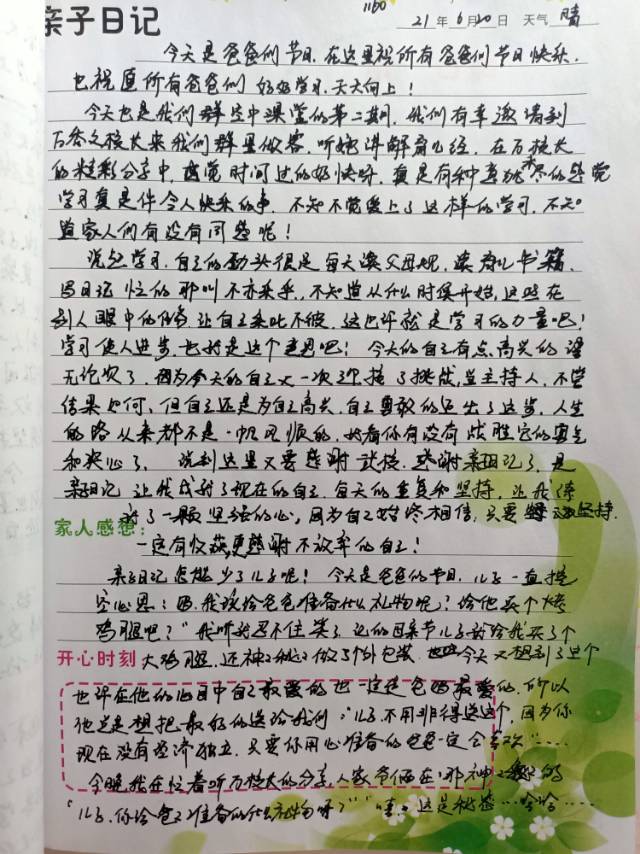 1160
亲子日记 21年6月20日 天气 晴
今天是爸爸们节日,在这里祝所有爸爸们节日快乐,
也祝愿所有爸爸们 好好学习,天天向上!
今天也是我们群空中课堂的第二期,我们有幸邀请到
万 校长来我们群里做客,听她讲解育儿经,在万校长
的精彩分享中,感觉时间过的好快呀,真是有种意犹未尽的感觉
学习真是件令人快乐的事,不知不觉爱上了这样的学习,不知
道家人们有没有同感呢!
说起学习,自己的劲头很足 每天读父母规,读育儿书籍、
写日记 忙的那叫不亦乐乎,不知道从什么时候开始,这些在
别人眼中的 让自己乐此不疲,这也许就是学习的力量吧!
学习使人进步,也许是这个意思吧!今天的自己有点高兴的语
无伦次了,因为今天的自己又一次 接了挑战,当主持人,不管
结果如何,但自己还是为自己高兴,自己勇敢的迈出了这步,人生
的路从来都不是一帆风顺的,就看你有没有战胜它的勇气
和决心了, 说到这里又要感谢武校,感谢亲子日记了,是
亲子日记 让我成就了现在的自己,每天的重复和坚持,让我练
就了一颗坚强的心,因为自己始终相信,只要 坚持,
家人感想:
一定有收获,更感谢不放弃的自己!
亲子日记怎能少了儿子呢!今天是爸爸的节日,儿子一直挖
空心思:"妈,我该给爸爸准备什么礼物呢?给他买个烤
鸡腿吧?"我听就忍不住笑了,记的母亲节儿子就给我买了个
开心时刻 大鸡腿,还神神秘秘做了个外包装, 今天又想到了这个
也许在他的心目中自己最爱的也一定是爸妈最爱的,所以
他总是想把最好的送给我们,"儿子,不用非得送这个,因为你
现在没有经济独立,只要你用心准备的爸爸一定会喜欢"……
今晚我在忙着听万校长的分享,人家爷俩在那神神秘秘的
"儿子,你给爸爸准备的什么礼物呀?""嘻,这是秘密…哈哈……